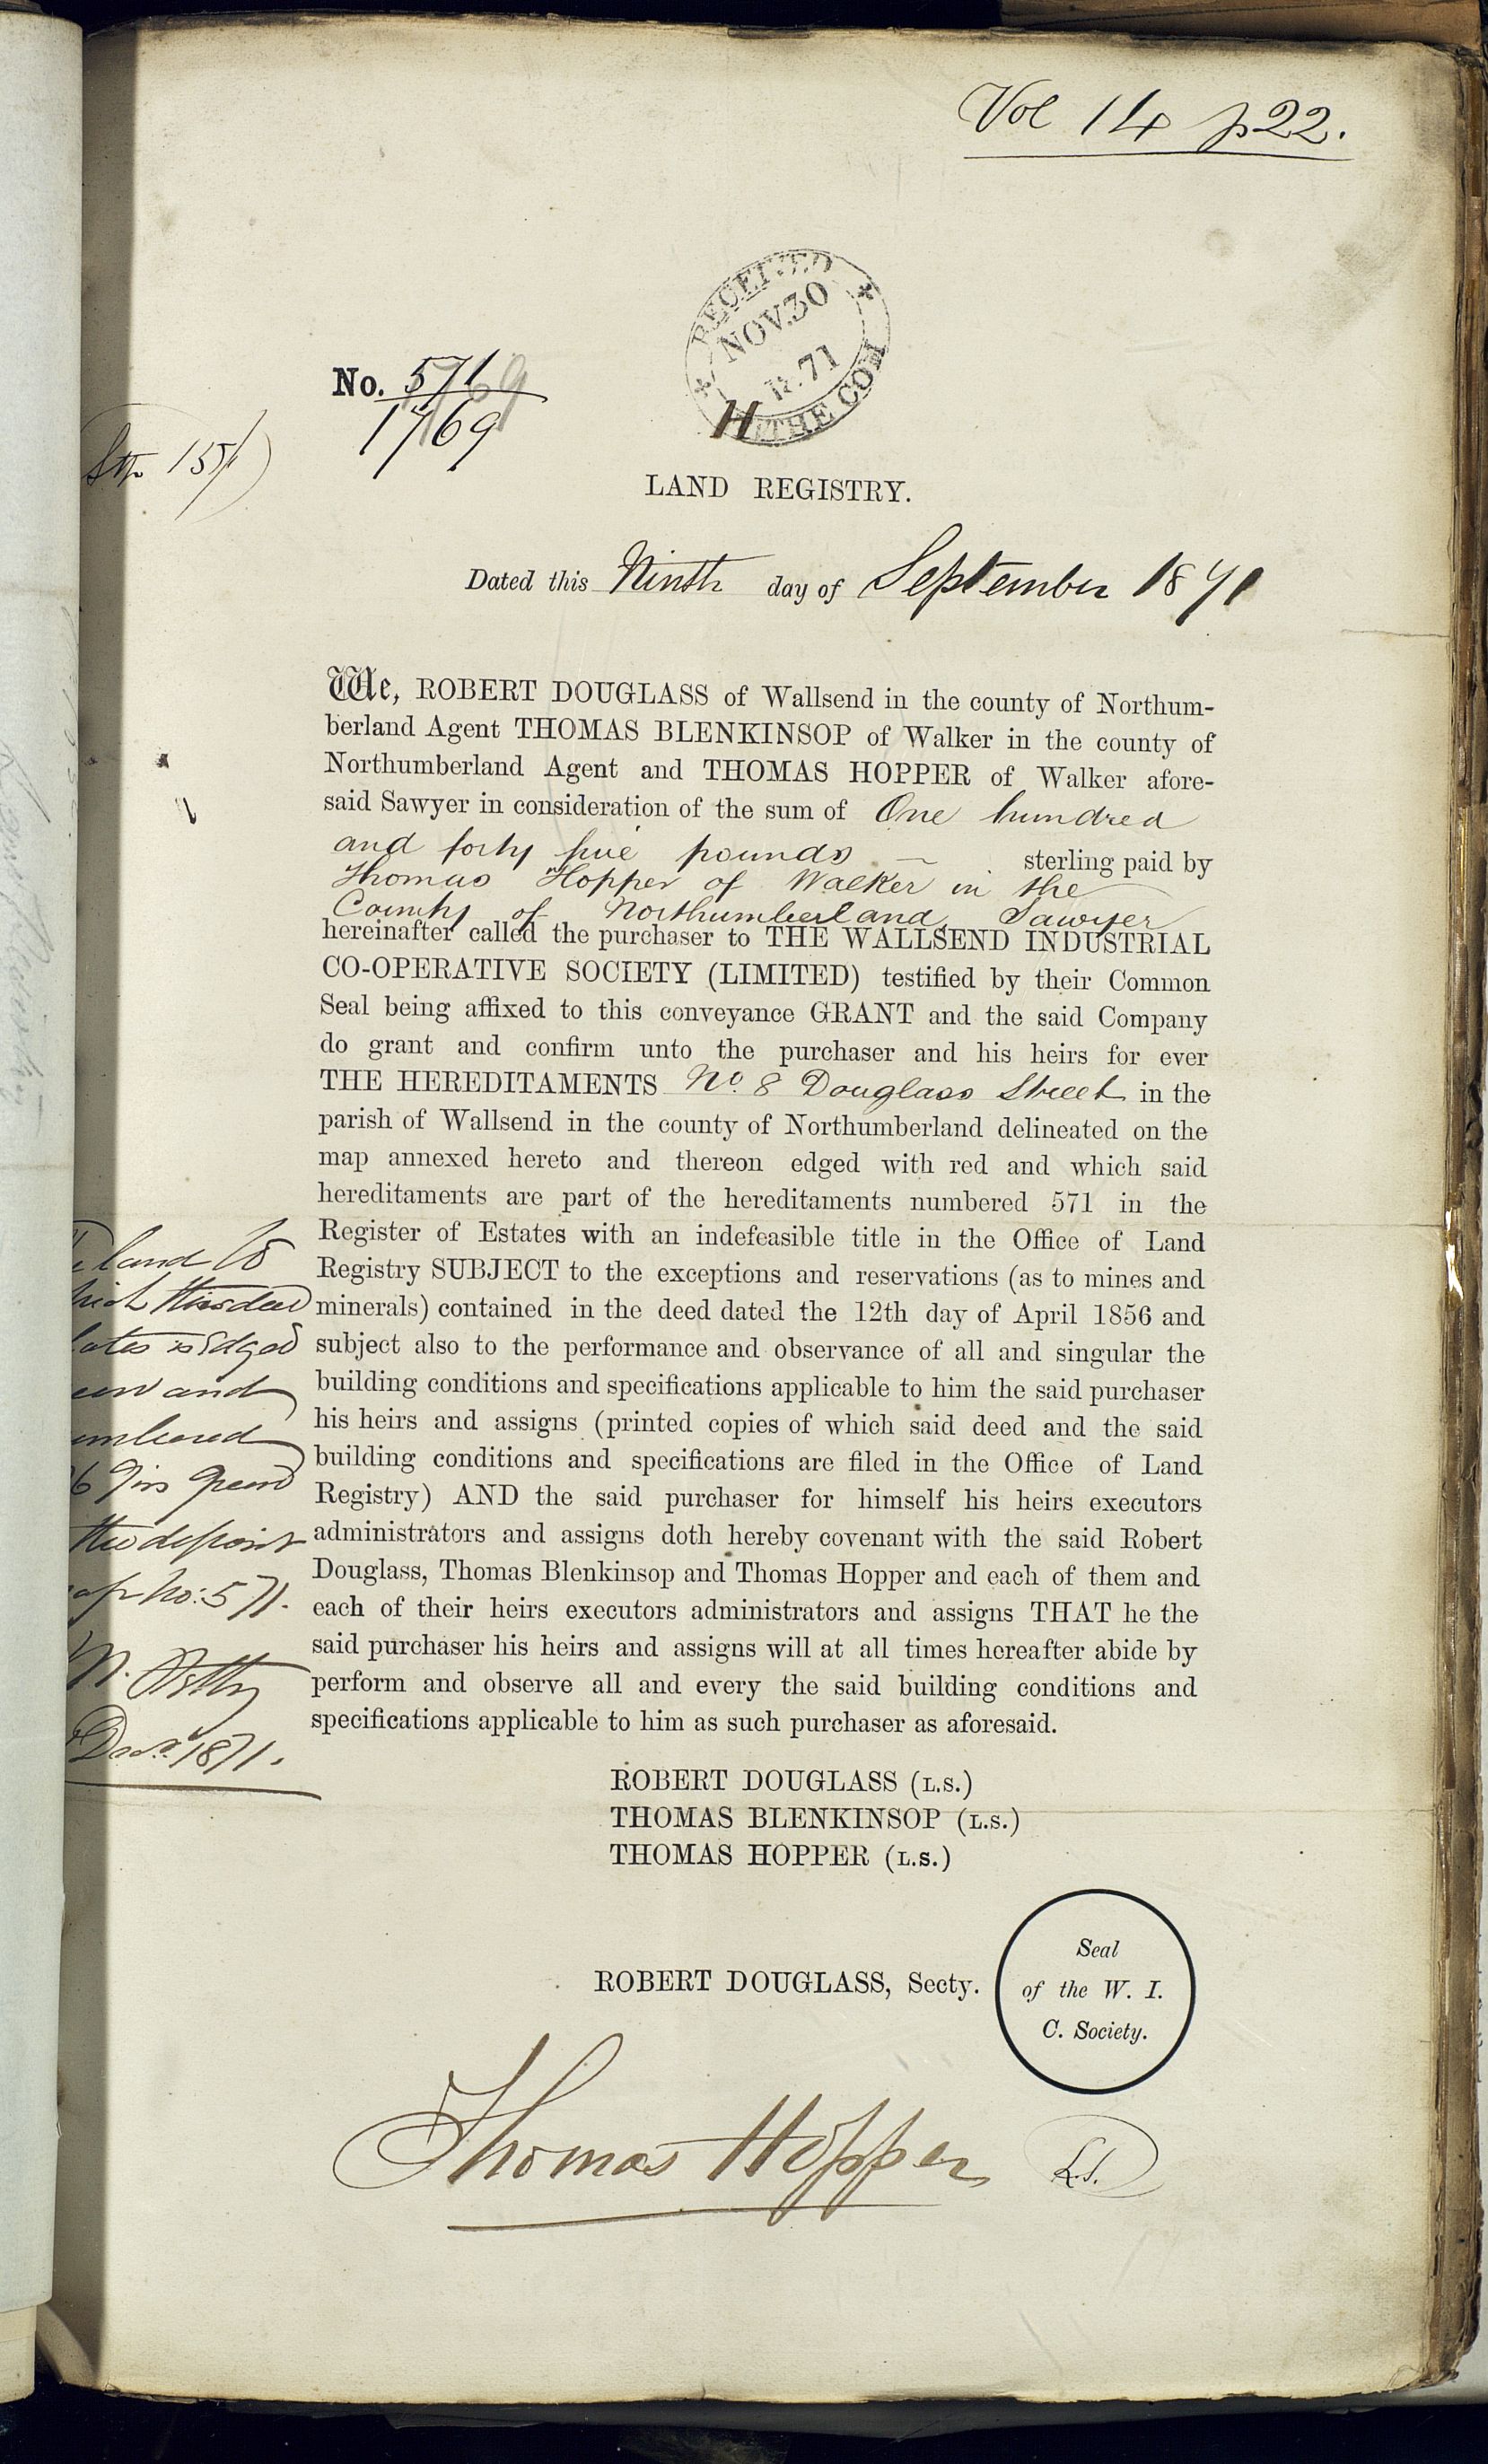 Vol 14 p22.
RECEIVED
NOV. 30
R. 71
H
THE COM
No. 571
1769
LAND REGISTRY.
Dated this Ninth day of September 1871
We, ROBERT DOUGLASS of Wallsend in the county of Northum-
berland Agent THOMAS BLENKINSOP of Walker in the county of
Northumberland Agent and THOMAS HOPPER of Walker afore-
said Sawyer in consideration of the sum of One hundred
and forty five pounds — sterling paid by
Thomas Hopper of Walker in the
County of Northumberland, Sawyer
hereinafter called the purchaser to THE WALLSEND INDUSTRIAL
CO-OPERATIVE SOCIETY (LIMITED) testified by their Common
Seal being affixed to this conveyance GRANT and the said Company
do grant and confirm unto the purchaser and his heirs for ever
THE HEREDITAMENTS No. 8 Douglass Street in the
parish of Wallsend in the county of Northumberland delineated on the
map annexed hereto and thereon edged with red and which said
hereditaments are part of the hereditaments numbered 571 in the
Register of Estates with an indefeasible title in the Office of Land
Registry SUBJECT to the exceptions and reservations (as to mines and
minerals) contained in the deed dated the 12th day of April 1856 and
subject also to the performance and observance of all and singular the
building conditions and specifications applicable to him the said purchaser
his heirs and assigns (printed copies of which said deed and the said
building conditions and specifications are filed in the Office of Land
Registry) AND the said purchaser for himself his heirs executors
administrators and assigns doth hereby covenant with the said Robert
Douglass, Thomas Blenkinsop and Thomas Hopper and each of them and
each of their heirs executors administrators and assigns THAT he the
said purchaser his heirs and assigns will at all times hereafter abide by
perform and observe all and every the said building conditions and
specifications applicable to him as such purchaser as aforesaid.
land to
this deed
is Edged
and
in green
the deposit
No: 571.
1871.
ROBERT DOUGLASS (L.S.)
THOMAS BLENKINSOP (L.S.)
THOMAS HOPPER (L.S.)
ROBERT DOUGLASS, Secty.
Seal
of the W. I.
C. Society.
Thomas Hopper L.S.